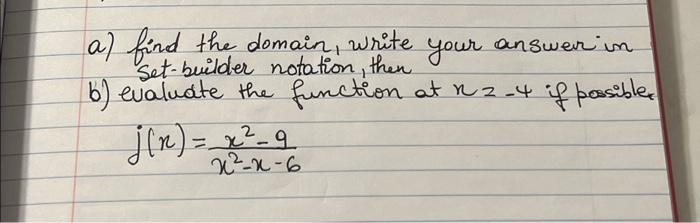 a) find the domain, write your answer in
set-builder notation, then
b) evaluate the function at x = -4 if possible.
j(x) = x² - 9
x² - x - 6